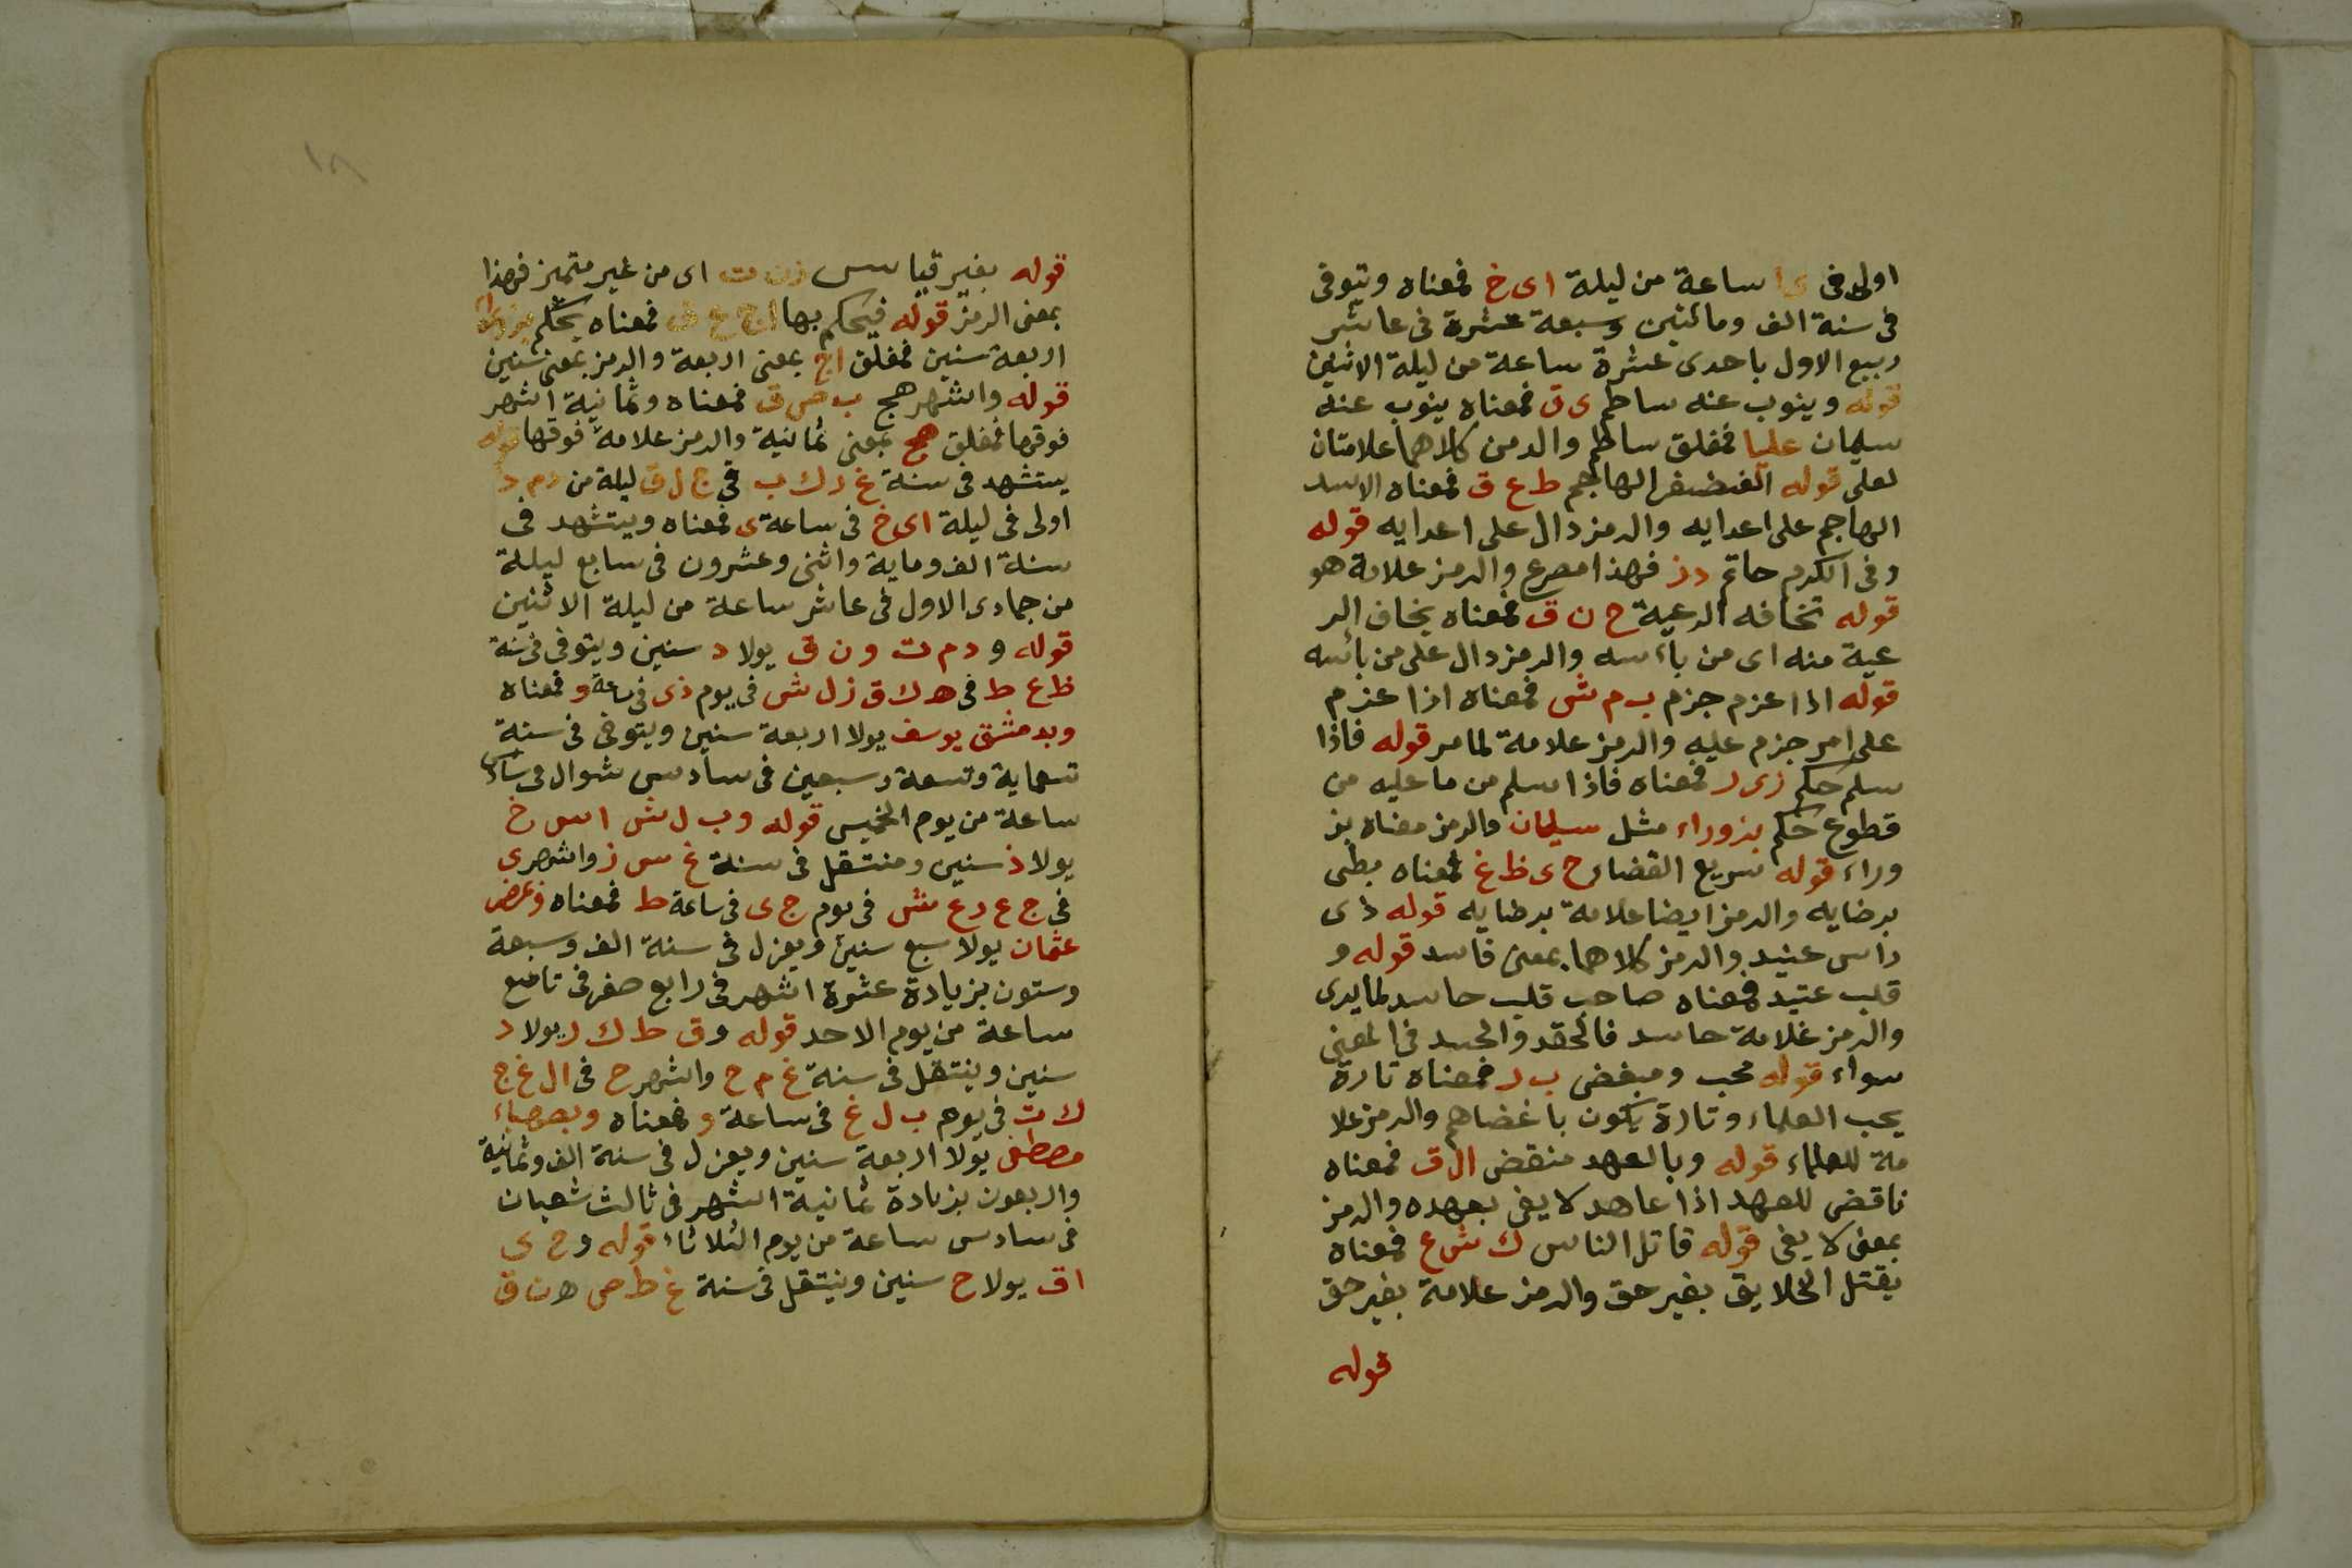 اولى فى ى ا ساعة من ليلة اى خ فمعناه ويتوفى
فى سنة الف ومائتين وسبعة عشرة فى عاشر
ربيع الاول باحدى عشرة ساعة من ليلة الاثنين
قوله وينوب عنه ساطم ى ق فمعناه ينوب عنه
سليمان عليا فمغلق ساطم والرمز كلاهما علامتان
لعلى قوله الغضنفر الهاجم ط ع ق فمعناه الاسد
الهاجم على اعدايه والرمز دال على اعدايه قوله
وفى الكرم حاتم د ز فهذا مصرع والرمز علامة هو
قوله تخافه الرعية ح ن ق فمعناه يخاف الر
عية منه اى من باءسه والرمز دال على من بائسه
قوله اذا عزم جزم ب م ش فمعناه اذا عزم
على امر جزم عليه والرمز علامة لما مر قوله فاذا
سلم حكم ز ى ر فمعناه فاذا سلم من ما عليه من
قطوع حكم بزوراء مثل سليمان والرمز معناه بز
وراء قوله سريع القضا ر ح ى ظ غ فمعناه بطى
برضايه والرمز ايضا علامة برضايه قوله ذى
راس عنيد والرمز كلاهما بمعنى فاسد قوله و
قلب عتيد فمعناه صاحب قلب حاسد لما يرى
والرمز علامة حاسد فالحقد والحسد فى المعنى
سواء قوله محب ومبغض ب ر فمعناه تارة
يحب العلماء وتارة يكون باغضاهم والرمز علا
مة للعلماء قوله وبالعهد منقض ال ق فمعناه
ناقض للعهد اذا عاهد لا يفى بعهده والرمز
بمعنى لا يفى قوله قاتل الناس ك ش ع فمعناه
يقتل الخلايق بغير حق والرمز علامة بغير حق
قوله
١٨
قوله بغير قياس ز ن ت اى من غير متميز فهذا
بمعنى الرمز قوله فيحكم بها اج ع ض فمعناه يحكم بزوراء
اربعة سنين فمغلق اج بمعنى اربعة والرمز بمعنى سنين
قوله واشهر هج ب ص ق فمعناه وثمانية اشهر
فوقها فمغلق هج بمعنى ثمانية والرمز علامة فوقها قوله
يستشهد فى سنة غ ر ك ب فى ج ل ق ليلة من د م د
اولى فى ليلة اى خ فى ساعة ى فمعناه ويتشهد فى
سنة الف وماية واثنى وعشرون فى سابع ليلة
من جمادى الاول فى عاشر ساعة من ليلة الاثنين
قوله و د م ت و ن ق يولا د سنين ويتوفى فى سنة
ظ ع ط فى ه ك ق ز ل ش فى يوم ذى فى ساعة و فمعناه
وبدمشق يوسف يولا اربعة سنين ويتوفى فى سنة
تسعماية وتسعة وسبعين فى سادس شوال فى سادس
ساعة من يوم الخميس قوله و ب ل ش ا س خ
يولا ذ سنين ومنتقل فى سنة غ س ز واشهر ى
فى ج ع د ع ش فى يوم ج ى فى ساعة ط فمعناه
عثمان يولا سبع سنين ويعزل فى سنة الف وسبعة
وستون بزيادة عشرة اشهر فى رابع صفر فى تاسع
ساعة من يوم الاحد قوله و ق ط ك ر يولا د
سنين وينتقل فى سنة غ م ح واشهر ح فى ال غ ج
ك ت فى يوم ب ل غ فى ساعة و فمعناه
مصطفى يولا اربعة سنين ويعزل فى سنة الف وثمانية
واربعون بزيادة ثمانية اشهر فى ثالث شعبان
فى سادس ساعة من يوم الثلاثاء قوله و ح ى
ا ق يولا ح سنين وينتقل فى سنة غ ط ص ه ن ق